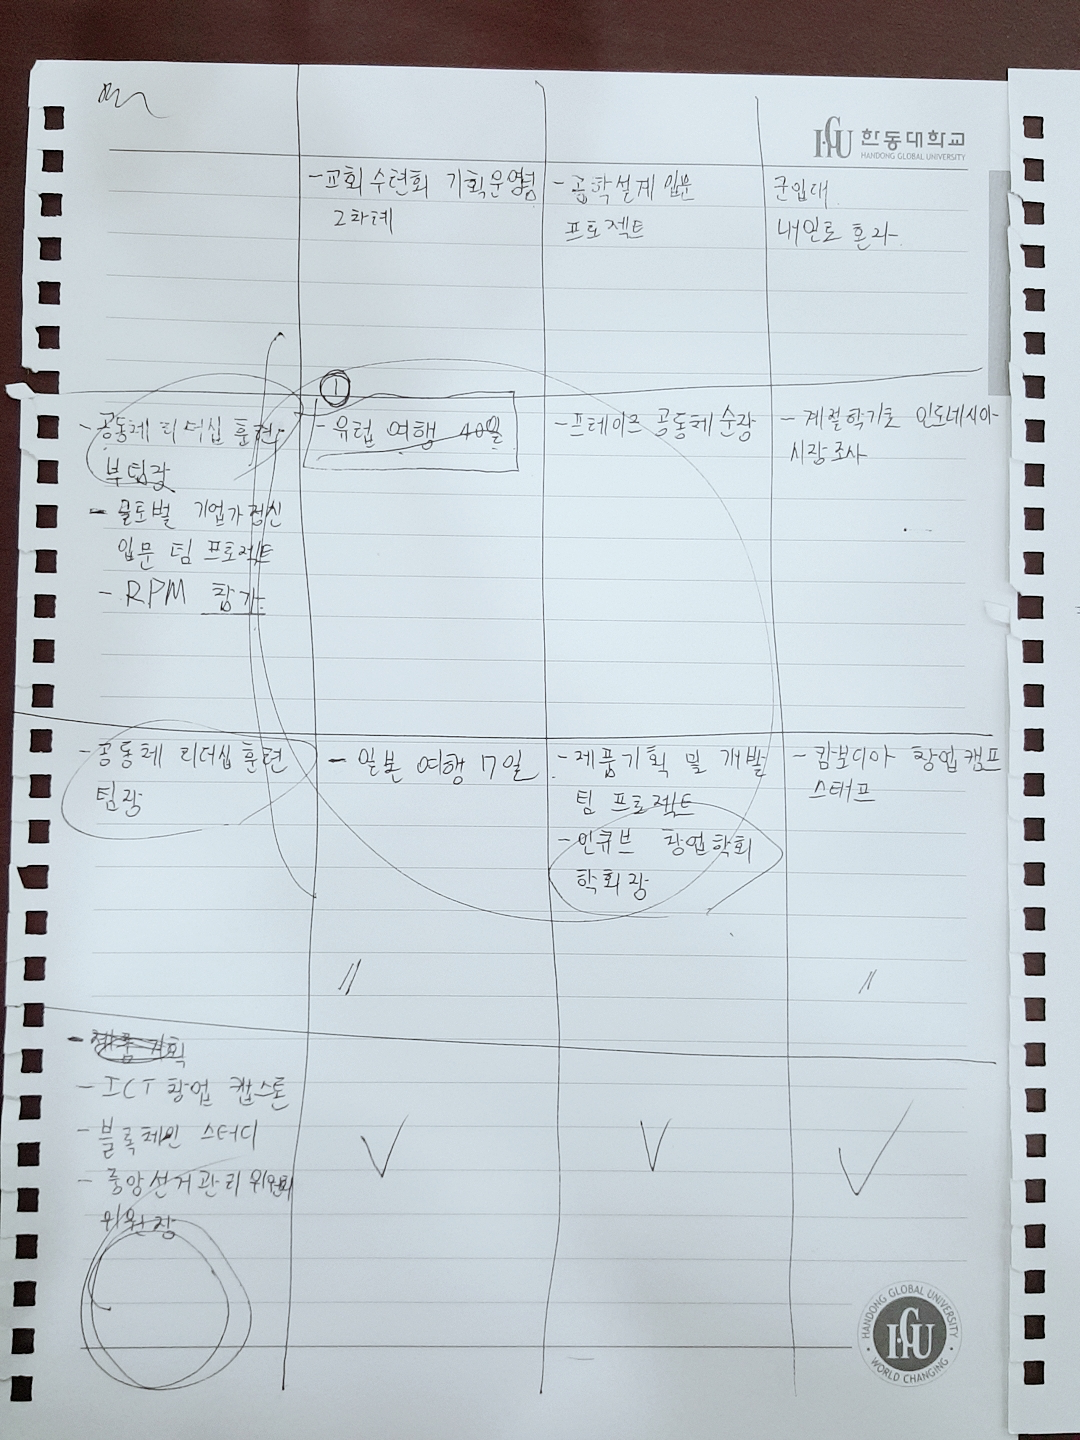 한동대학교
HANDONG GLOBAL UNIVERSITY
- 교회 수련회 기획운영팀
2차례
- 공학설계 입문
프로젝트
군입대
내일로 혼자
- 공동체 리더십 훈련
부팀장
- 글로벌 기업가정신
입문 팀 프로젝트
- RPM 참가
①
- 유럽 여행 40일
- 프테이즈 공동체 순장
- 계절학기로 인도네시아
시장조사
- 공동체 리더십 훈련
팀장
- 일본 여행 17일
- 제품기획 및 개발
팀 프로젝트
- 인큐브 창업학회
학회장
- 캄보디아 창업캠프
스태프
- 제품 기획
- ICT 창업 캡스톤
- 블록체인 스터디
- 중앙선거관리위원회
위원장
HANDONG GLOBAL UNIVERSITY
HGU
WORLD CHANGING